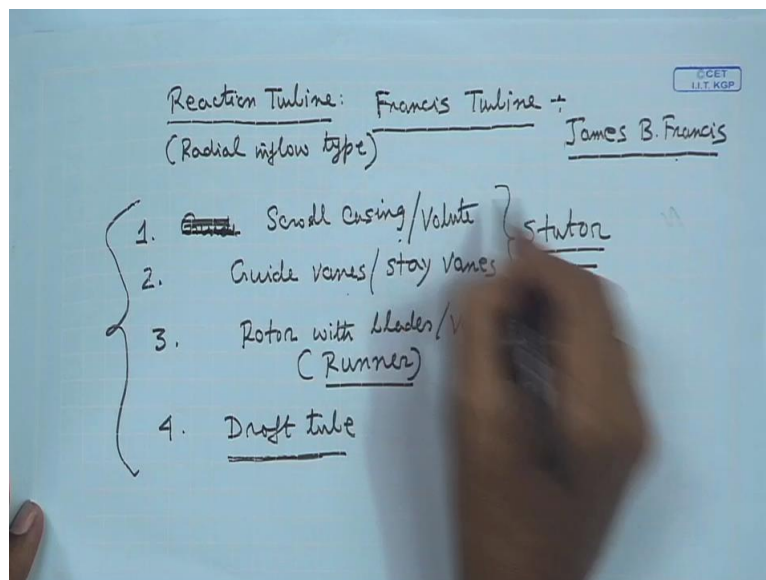 ©CET
I.I.T. KGP
Reaction Turbine: Francis Turbine ÷
(Radial inflow type) James B. Francis
1. Scroll Casing/Volute } Stator
2. Guide vanes/stay vanes
3. Rotor with blades/
(Runner)
4. Draft tube